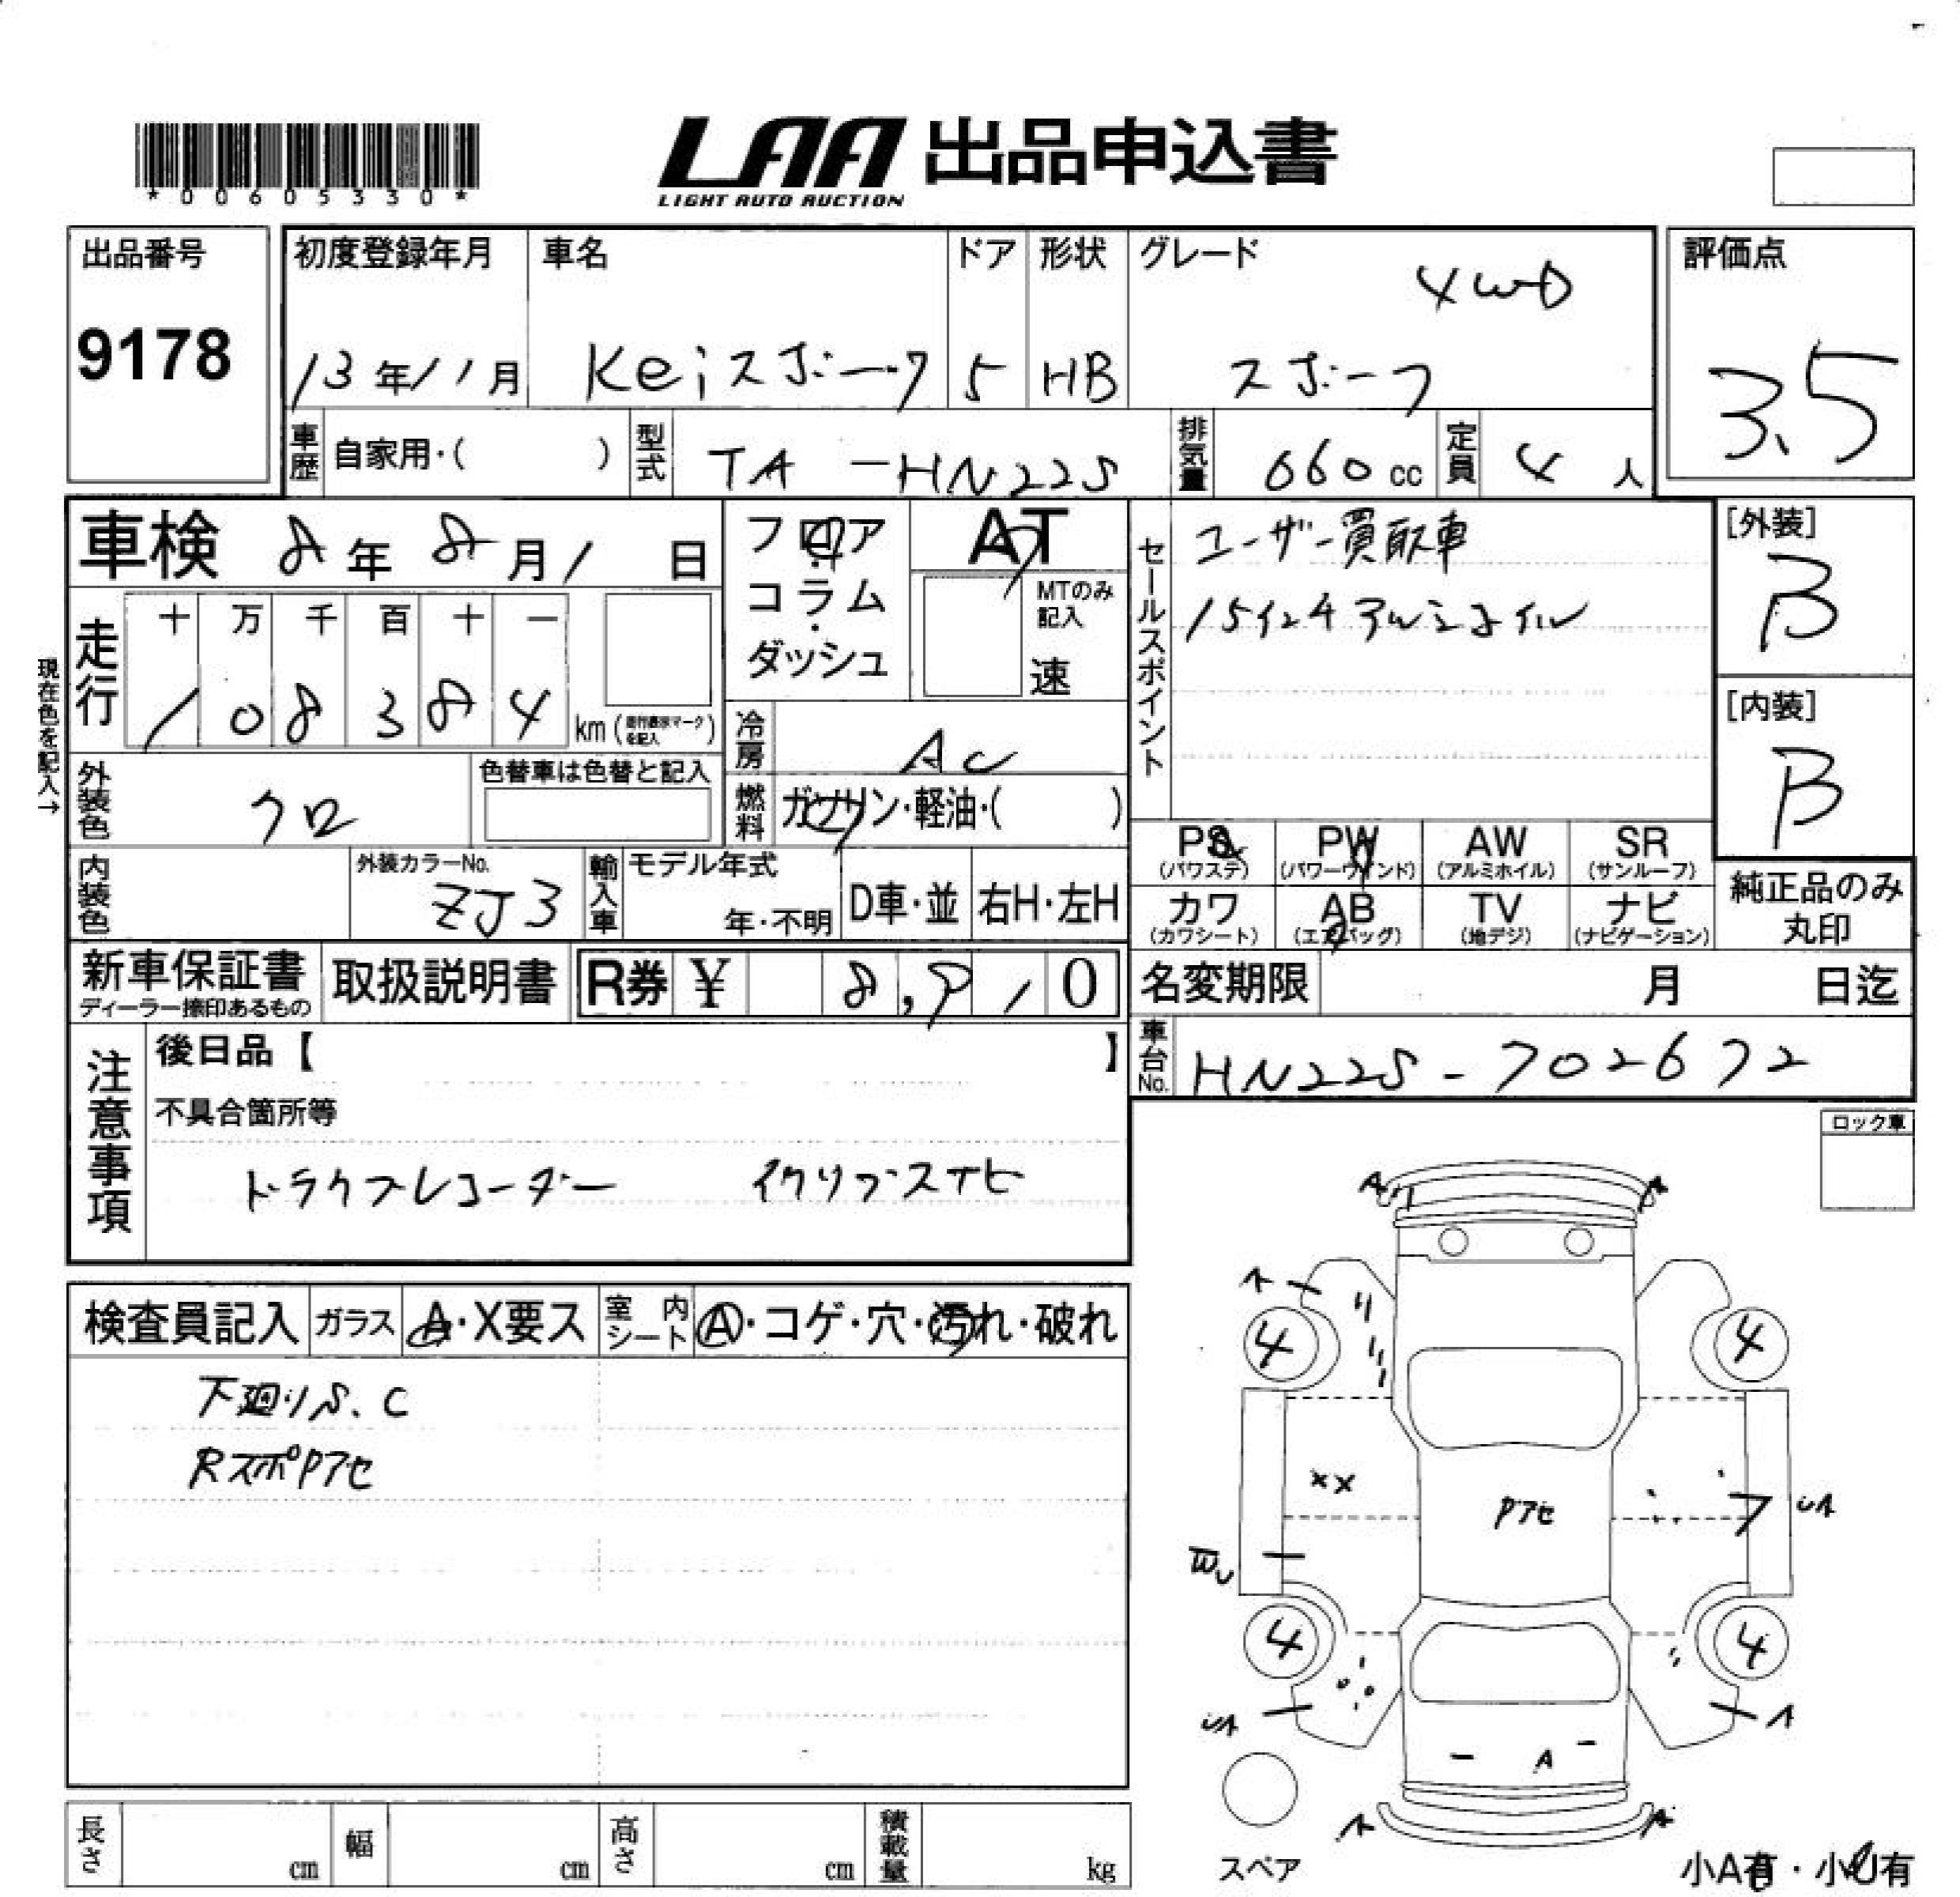 *00605330*
LAA 出品申込書
LIGHT AUTO AUCTION
出品番号
9178
初度登録年月
13年11月
車名
Keiスポーツ
ドア
5
形状
HB
グレード
4WD
スポーツ
評価点
3.5
車歴
自家用・( )
型式
TA-HN22S
排気量
660cc
定員
4人
車検 8年8月1日
フロア・コラム・ダッシュ
AT
MTのみ記入
速
セールスポイント
ユーザー買取車
15インチアルミホイル
[外装]
B
[内装]
B
現在色を記入→
走行
十万千百十一
108384
km(走行表示マークを記入)
冷房
AC
外装色
クロ
色替車は色替と記入
燃料
ガソリン・軽油・( )
内装色
外装カラーNo.
ZJ3
輸入車
モデル年式
年・不明
D車・並
右H・左H
PS
(パワステ)
PW
(パワーウインド)
AW
(アルミホイル)
SR
(サンルーフ)
カワ
(カワシート)
AB
(エアバッグ)
TV
(地デジ)
ナビ
(ナビゲーション)
純正品のみ
丸印
新車保証書
ディーラー捺印あるもの
取扱説明書
R券 ¥ 8,910
名変期限
月 日迄
車台No.
HN22S-702672
注意事項
後日品【 】
不具合箇所等
ドライブレコーダー イクリプスナビ
ロック車
検査員記入
ガラス
A・X要ス
室内シート
A・コゲ・穴・汚れ・破れ
下廻りS.C
RスポPアセ
A
A
A
4
4
XX
Pアセ
UA
W
4
4
UA
A
A
A
A
スペア
長さ
cm
幅
cm
高さ
cm
積載量
kg
小A有・小U有